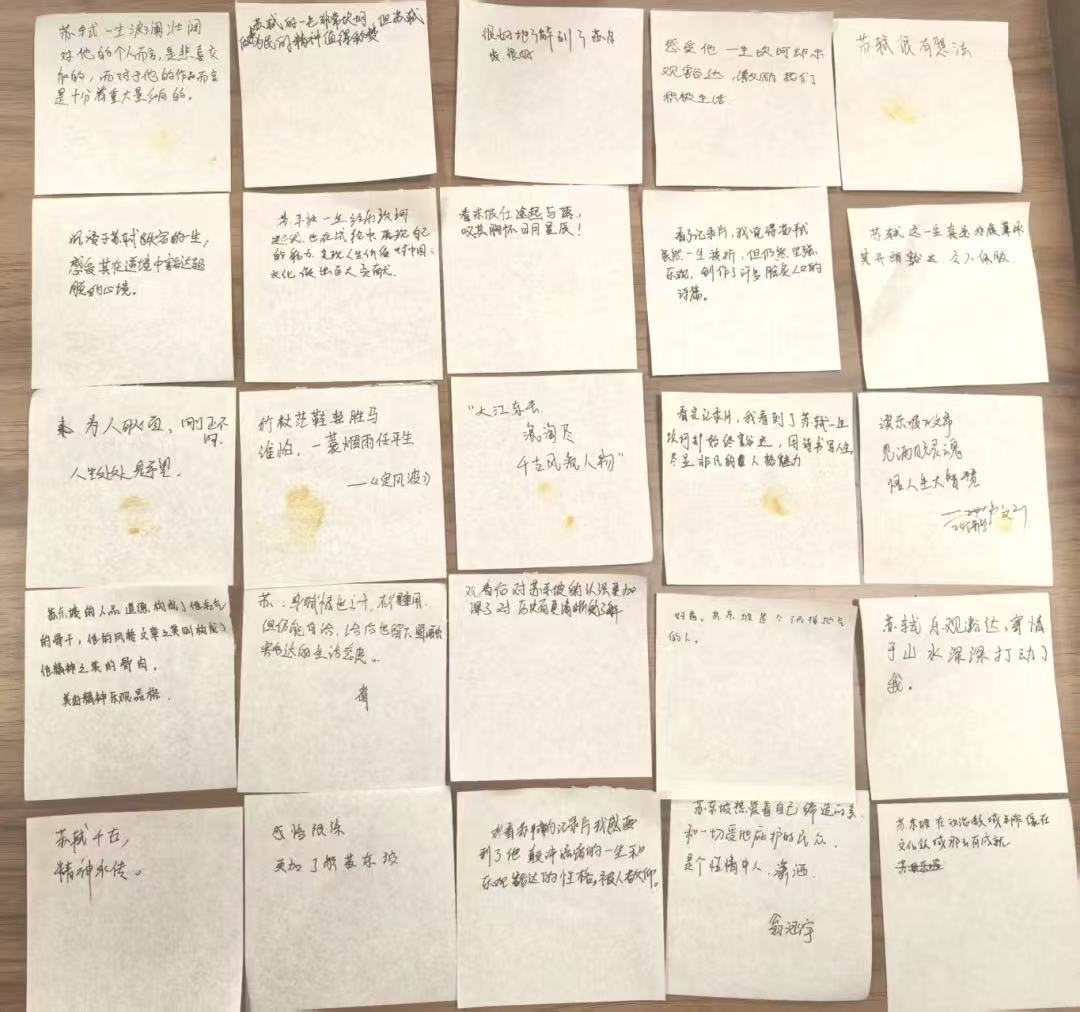 苏轼一生波澜壮阔
对他的个人而言，是悲喜交
加的，而对于他的作品而言
是十分着重大影响的。
苏轼的一生非常坎坷，但苏轼
为民的精神值得称赞
很好地了解到了苏轼
很好
感受他一生坎坷却乐
观豁达，激励我们
积极生活
苏轼很有想法
沉浸于苏轼跌宕的一生，
感受其在逆境中豁达超
脱的心境。
苏东坡一生经历坎坷
起伏，也在试炼中展现自己
的能力，实现人生价值，对中国
文化做出巨大贡献。
看东坡仕途起与落，
叹其胸怀日月星辰！
看了记录片，我觉得苏轼
虽然一生波折，但仍然坚强、
乐观，创作了许多脍炙人口的
诗篇。
苏轼这一生真是
其开头豁达
为人耿直，刚正不
阿。
人生处处见希望。
竹杖芒鞋轻胜马
谁怕，一蓑烟雨任平生
——《定风波》
“大江东去
浪淘尽
千古风流人物”
看完记录片，我看到了苏轼一生
坎坷却始终豁达，用诗书写人生，
尽显非凡的人格魅力
读东坡文章
见洒脱灵魂
悟人生大智境
苏东坡的人品道德构成了他名气
的骨干，他的风格文章之美则构成了
他精神之美的骨肉。
美好精神乐观品格
但仍能自洽，洽后也留下
豁达的生活态度。
观看后对苏东坡的认识更加
深了对历史有更清晰的了解
好看。苏东坡是个
的人。
苏轼乐观豁达，寄情
于山水深深打动了
我。
苏轼千古，
精神永传。
感悟很深
更加了解苏东坡
观看苏轼的记录片我感受
到了他的一生和
乐观豁达的性格，被人敬仰。
苏东坡想爱着自己缔造的美
和一切受他庇护的民众
是个性情中人、潇洒
翁涵宇
苏东坡在政治领域
文化领域都有成就